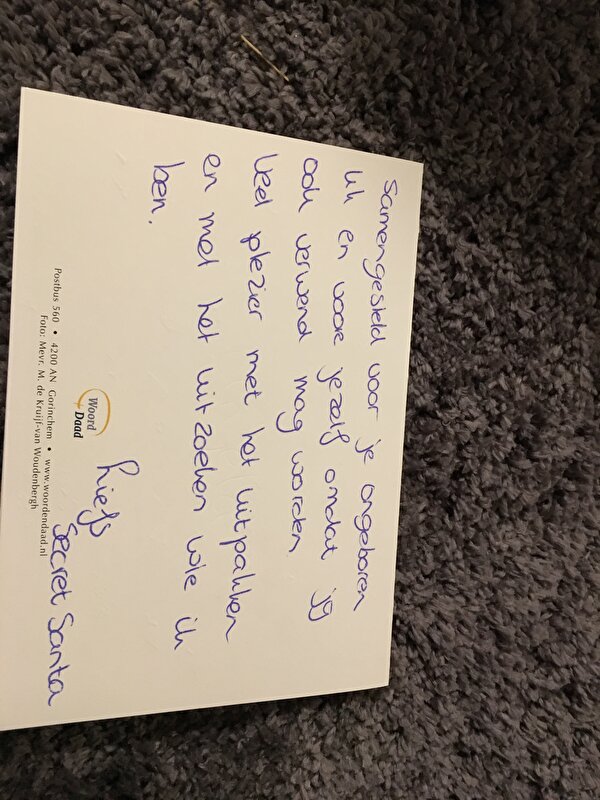 Samengesteld voor je ongeboren
uk en voor jezelf omdat jij
ook verwend mag worden
Veel plezier met het uitpakken
en met het uitzoeken wie ik
ben.
Liefs
Secret Santa
Woord
Daad
Postbus 560 • 4200 AN Gorinchem • www.woordendaad.nl
Foto: Mevr. M. de Kruijf-van Woudenbergh